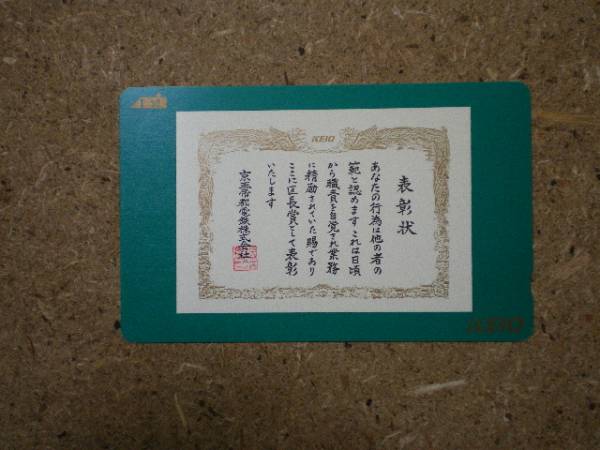 KEIO
表彰状
あなたの行為は他の者の
範と認めます これは日頃
から職責を自覚され業務
に精励されていた賜であり
ここに区長賞として表彰
いたします
京王帝都電鉄株式会社
KEIO